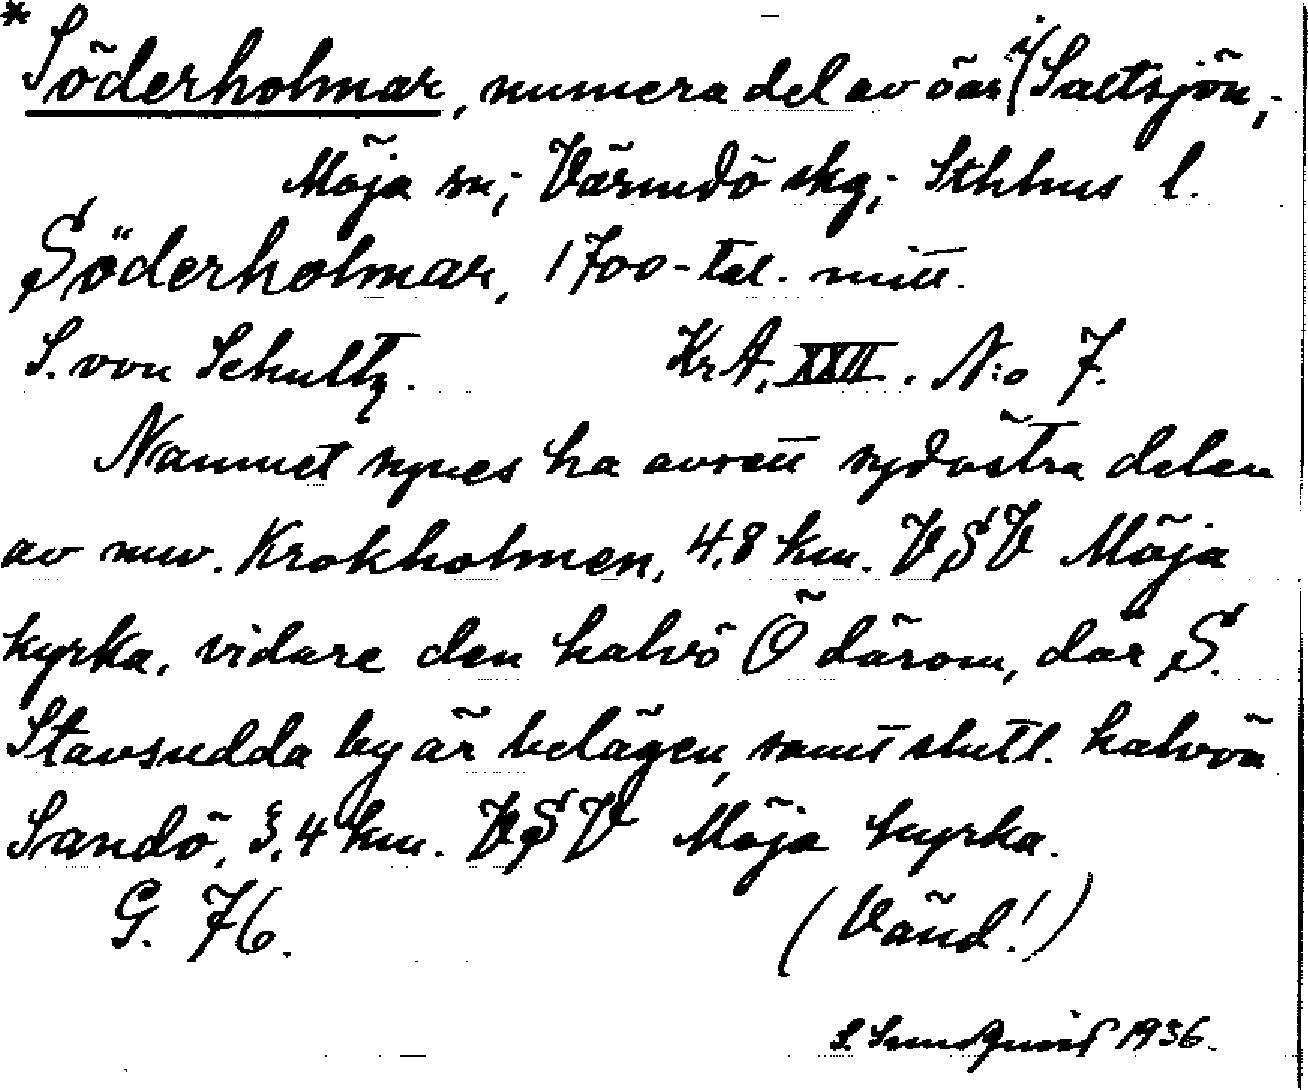 *Söderholmar, numera del av öar i Saltsjön,-
Möja sn,- Värmdö skg,- Sthlms l.
Söderholmar, 1700-tal. mitt.
S. von Schultz. KrA. XXII. N:o 7.
Namnet synes ha avsett sydöstra delen
av nuv. Krokholmen, 4,8 km. VSV Möja
kyrka, vidare den halvö Ö därom, där S.
Stavsudda by är belägen, samt slutl. halvön
Sandö, 3,4 km. VSV Möja kyrka.
G. 76. (Vänd!)
S. Sundquist 1936.